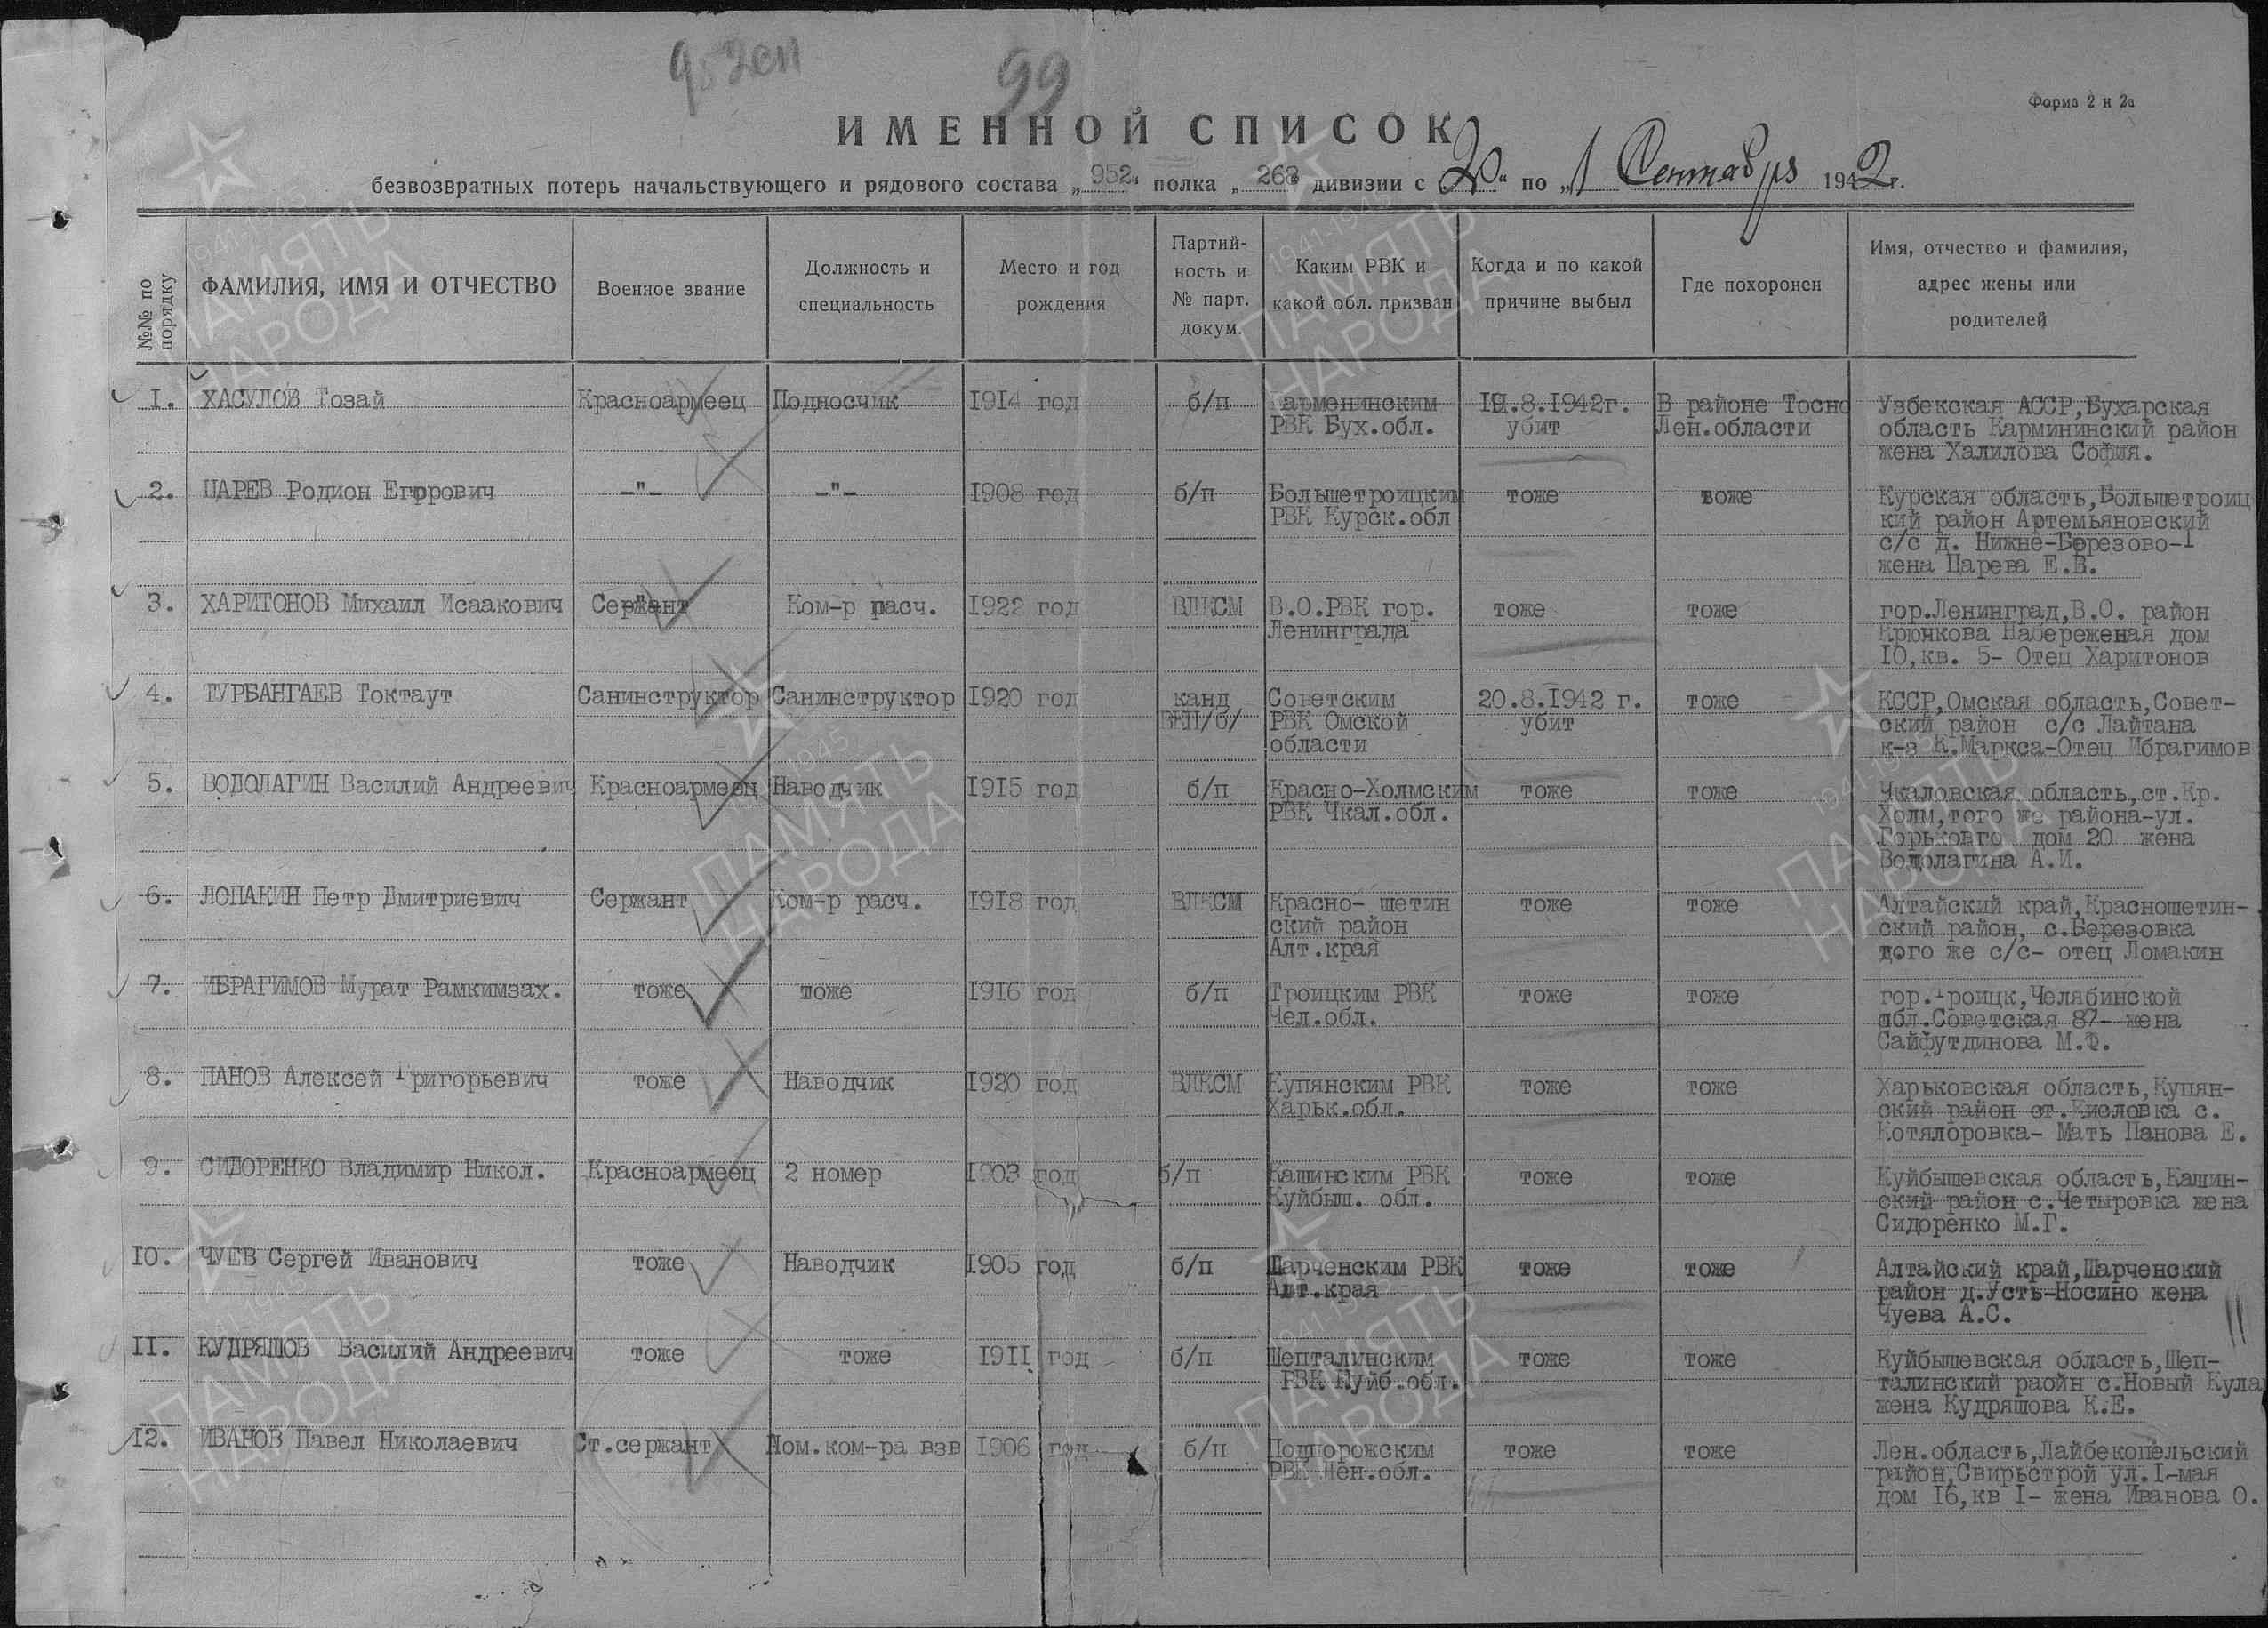 952сп
99
Форма 2 и 2а
ИМЕННОЙ СПИСОК
безвозвратных потерь начальствующего и рядового состава „952“ полка „268 дивизии с „20“ по „1 Сентября 1942г.
№№ по порядку
ФАМИЛИЯ, ИМЯ И ОТЧЕСТВО
Военное звание
Должность и специальность
Место и год рождения
Партий-ность и № парт. докум.
Каким РВК и какой обл. призван
Когда и по какой причине выбыл
Где похоронен
Имя, отчество и фамилия, адрес жены или родителей
1. ХАСУЛОВ Тозай Красноармеец Подносчик 1914 год б/п арменинским 19.8.1942г. В районе Тосно Узбекская АССР,Бухарская
РВК Бух.обл. убит Лен.области область Карминински�й район
жена Халилова София.
2. ЦАРЕВ Родион Егорович -"- -"- 1908 год б/п Большетроицким тоже тоже Курская область,Большетроиц
РВК Курск.обл кий район Артемьяновский
с/с д. Нижне-Березово-I
жена Царева Е.В.
3. ХАРИТОНОВ Михаил Исаакович Сержант Ком-р расч. 1922 год ВЛКСМ В.О.РВК гор. тоже тоже гор.Ленинград,В.О. район
Ленинграда Крюнкова Набереженая дом
10,кв. 5- Отец Харитонов
4. ТУРБАНГАЕВ Токтаут Санинструктор Санинструктор 1920 год канд Советским 20.8.1942 г. тоже КССР,Омская область,Совет-
ВКП/б/ РВК Омской убит ский район с/с Лайтана
области к-з К.Маркса-Отец Ибрагимов
5. ВОДОЛАГИН Василий Андреевич Красноармеец Наводчик 1915 год б/п Красно-Холмским тоже тоже Чкаловская область,ст.Кр.
РВК Чкал.обл. Холм,того же района-ул.
Горьковго дом 20 жена
Водолагина А.И.
6. ЛОПАКИН Петр Дмитриевич Сержант Ком-р расч. 1918 год ВЛКСМ Красно- щетин тоже тоже Алтайский край,Краснощетин-
ский район ский район, с.Березовка
Алт.края того же с/с- отец Ломакин
7. ИБРАГИМОВ Мурат Рамкимзах. тоже тоже 1916 год б/п Троицким РВК тоже тоже гор.Троицк,Челябинской
Чел.обл. обл.Советская 87- жена
Сайфутдинова М.Ф.
8. ПАНОВ Алексей Григорьевич тоже Наводчик 1920 год ВЛКСМ Купянским РВК тоже тоже Харьковская область,Купян-
Харьк.обл. ский район ст.Кисловка с.
Котялоровка- Мать Панова Е.
9. СИДОРЕНКО Владимир Никол. Красноармеец 2 номер 1903 год б/п Кашинским РВК тоже тоже Куйбышевская область,Кашин-
Куйбыш. обл. ский район с.Четыровка жена
Сидоренко М.Г.
10. ЧУЕВ Сергей Иванович тоже Наводчик 1905 год б/п Шарченским РВК тоже тоже Алтайский край,Шарченский
Алт.края район д.Усть-Носино жена
Чуева А.С.
11. КУДРЯШОВ Василий Андреевич тоже тоже 1911 год б/п Шепталинским тоже тоже Куйбышевская область,Шеп-
РВК Куйб.обл. талинский раойн с.Новый Кула
жена Кудряшова К.Е.
12. ИВАНОВ Павел Николаевич Ст.сержант Пом.ком-ра взв 1906 год б/п Подпорожским тоже тоже Лен.область,Лайбекопельский
РВК Лен.обл. район,Свирьстрой ул.I-мая
дом 16,кв I- жена Иванова О.
1941-1945
ПАМЯТЬ
НАРОДА